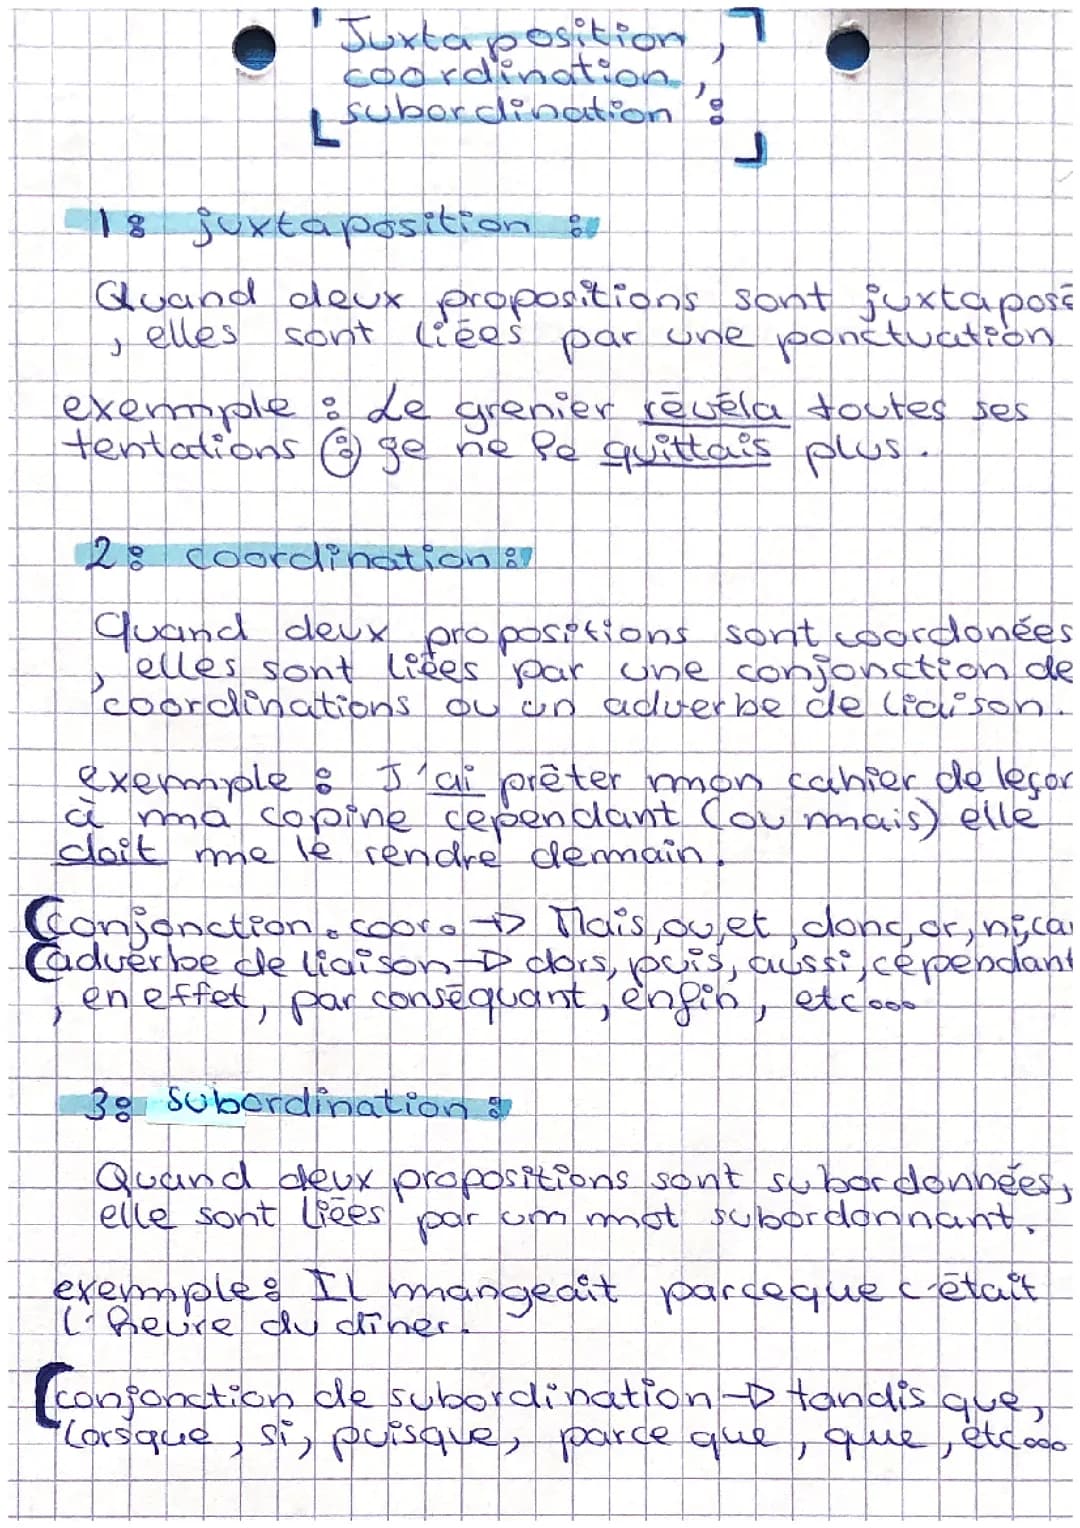 Juxtaposition,
coordination,
subordination :
1: juxtaposition :
Quand deux propositions sont juxtaposé
, elles sont liées par une ponctuation
exemple : Le grenier révéla toutes ses
tentations : je ne le quittais plus.
2: coordination :
Quand deux propositions sont coordonées
, elles sont liées par une conjonction de
coordinations ou un adverbe de liaison.
exemple : J'ai prêter mon cahier de leçon
à ma copine cependant (ou mais) elle
doit me le rendre demain.
(conjonction. coor. → Mais, ou, et, donc, or, ni, car
(adverbe de liaison → alors, puis, aussi, cependant
, en effet, par conséquant, enfin, etc...
3: subordination :
Quand deux propositions sont subordonnées,
elle sont liées par um mot subordonnant.
exemple: Il mangeait parceque c'était
l'heure du dîner.
(conjonction de subordination → tandis que,
lorsque, si, puisque, parce que, que, etc...